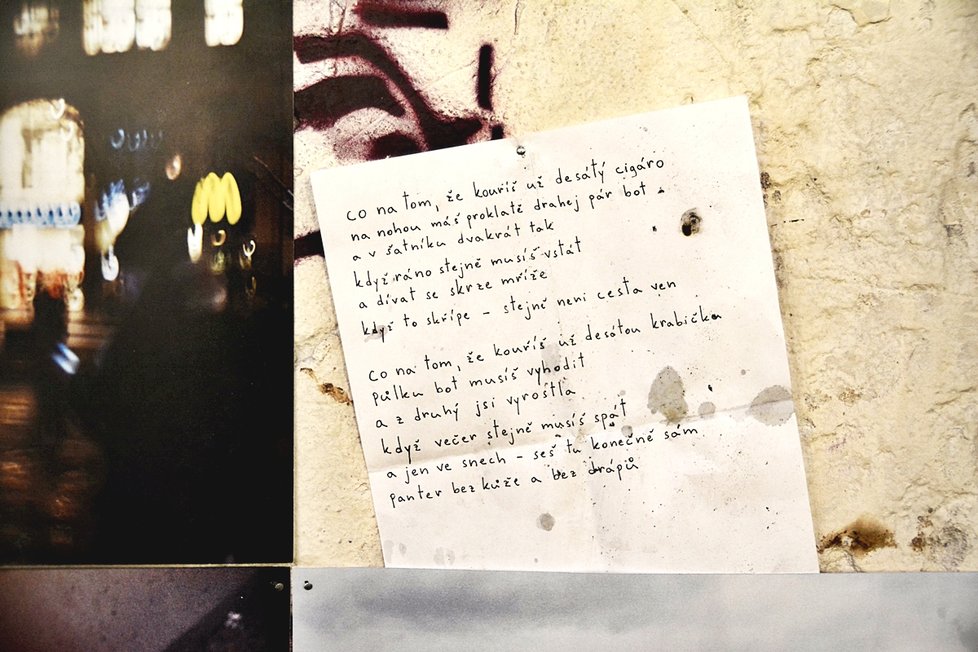 co na tom, že kouříš už desátý cigáro
na nohou máš proklatě drahej pár bot
a v šatníku dvakrát tak
když ráno stejně musíš vstát
a dívat se skrze mříže
když to skřípe - stejně není cesta ven
co na tom, že kouříš už desátou krabičku
půlku bot musíš vyhodit
a z druhý jsi vyrostla
když večer stejně musíš spát
a jen ve snech - seš tu konečně sám
panter bez kůže a bez drápů